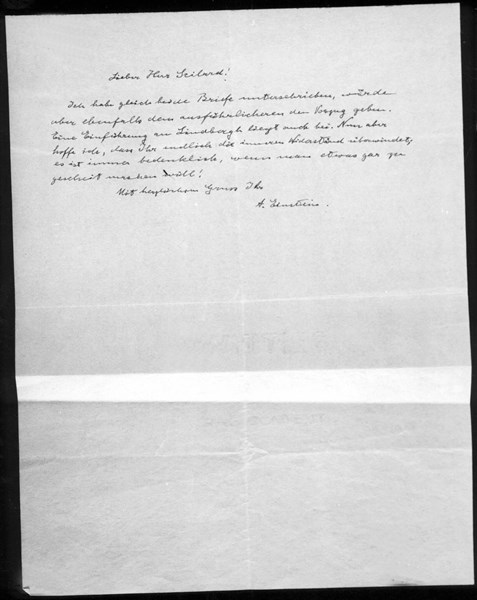 Lieber Herr Szilard!
Ich habe gleich beide Briefe unterschrieben, würde
aber ebenfalls dem ausführlicheren den Vorzug geben.
Eine Einführung zu Lindbergh liegt auch bei. Nun aber
hoffe ich, dass Ihr endlich die inneren Widerstände überwindet;
es ist immer bedenklich, wenn man etwas gar zu
gescheit machen will!
Mit herzlichem Gruss Ihr
A. Einstein.